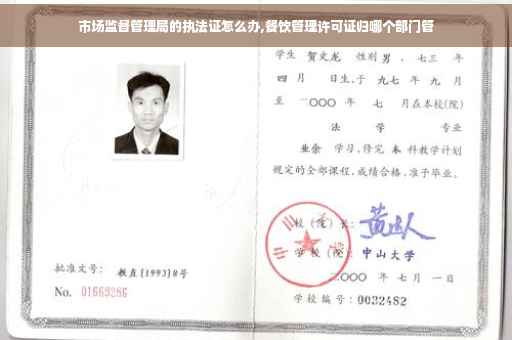 市场监督管理局的执法证怎么办,餐饮管理许可证归哪个部门管
学生 贺文龙 性别 男 、七三 年
四 月 日生,于 九七 年 九 月
至 二〇〇〇 年 七 月在本校(院)
法 学 专业
业余 学习,修完 本 科教学计划
规定的全部课程,成绩合格,准予毕业。
校(院)长:
学 校(院): 中山大学
二〇〇〇 年 七 月 一 日
学校编号: 0032482
批准文号: 教直[1993]8号
No. 01669286